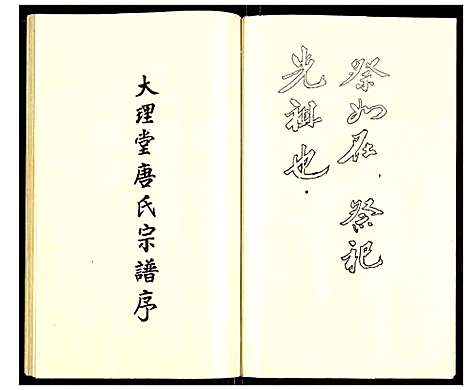 祭如在，祭祀
光祖也。
大理堂唐氏宗譜序